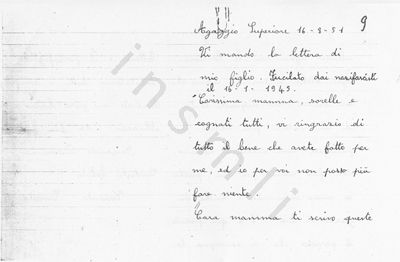 9
Agazzio Superiore 16-8-51
Vi mando la lettera di
mio figlio. Fucilato dai nazifascisti
il 16-1-1945.
"Carissima mamma, sorelle e
cognati tutti, vi ringrazio di
tutto il bene che avete fatto per
me, ed io per voi non posso più
fare niente.
"Cara mamma ti scrivo queste
insmli